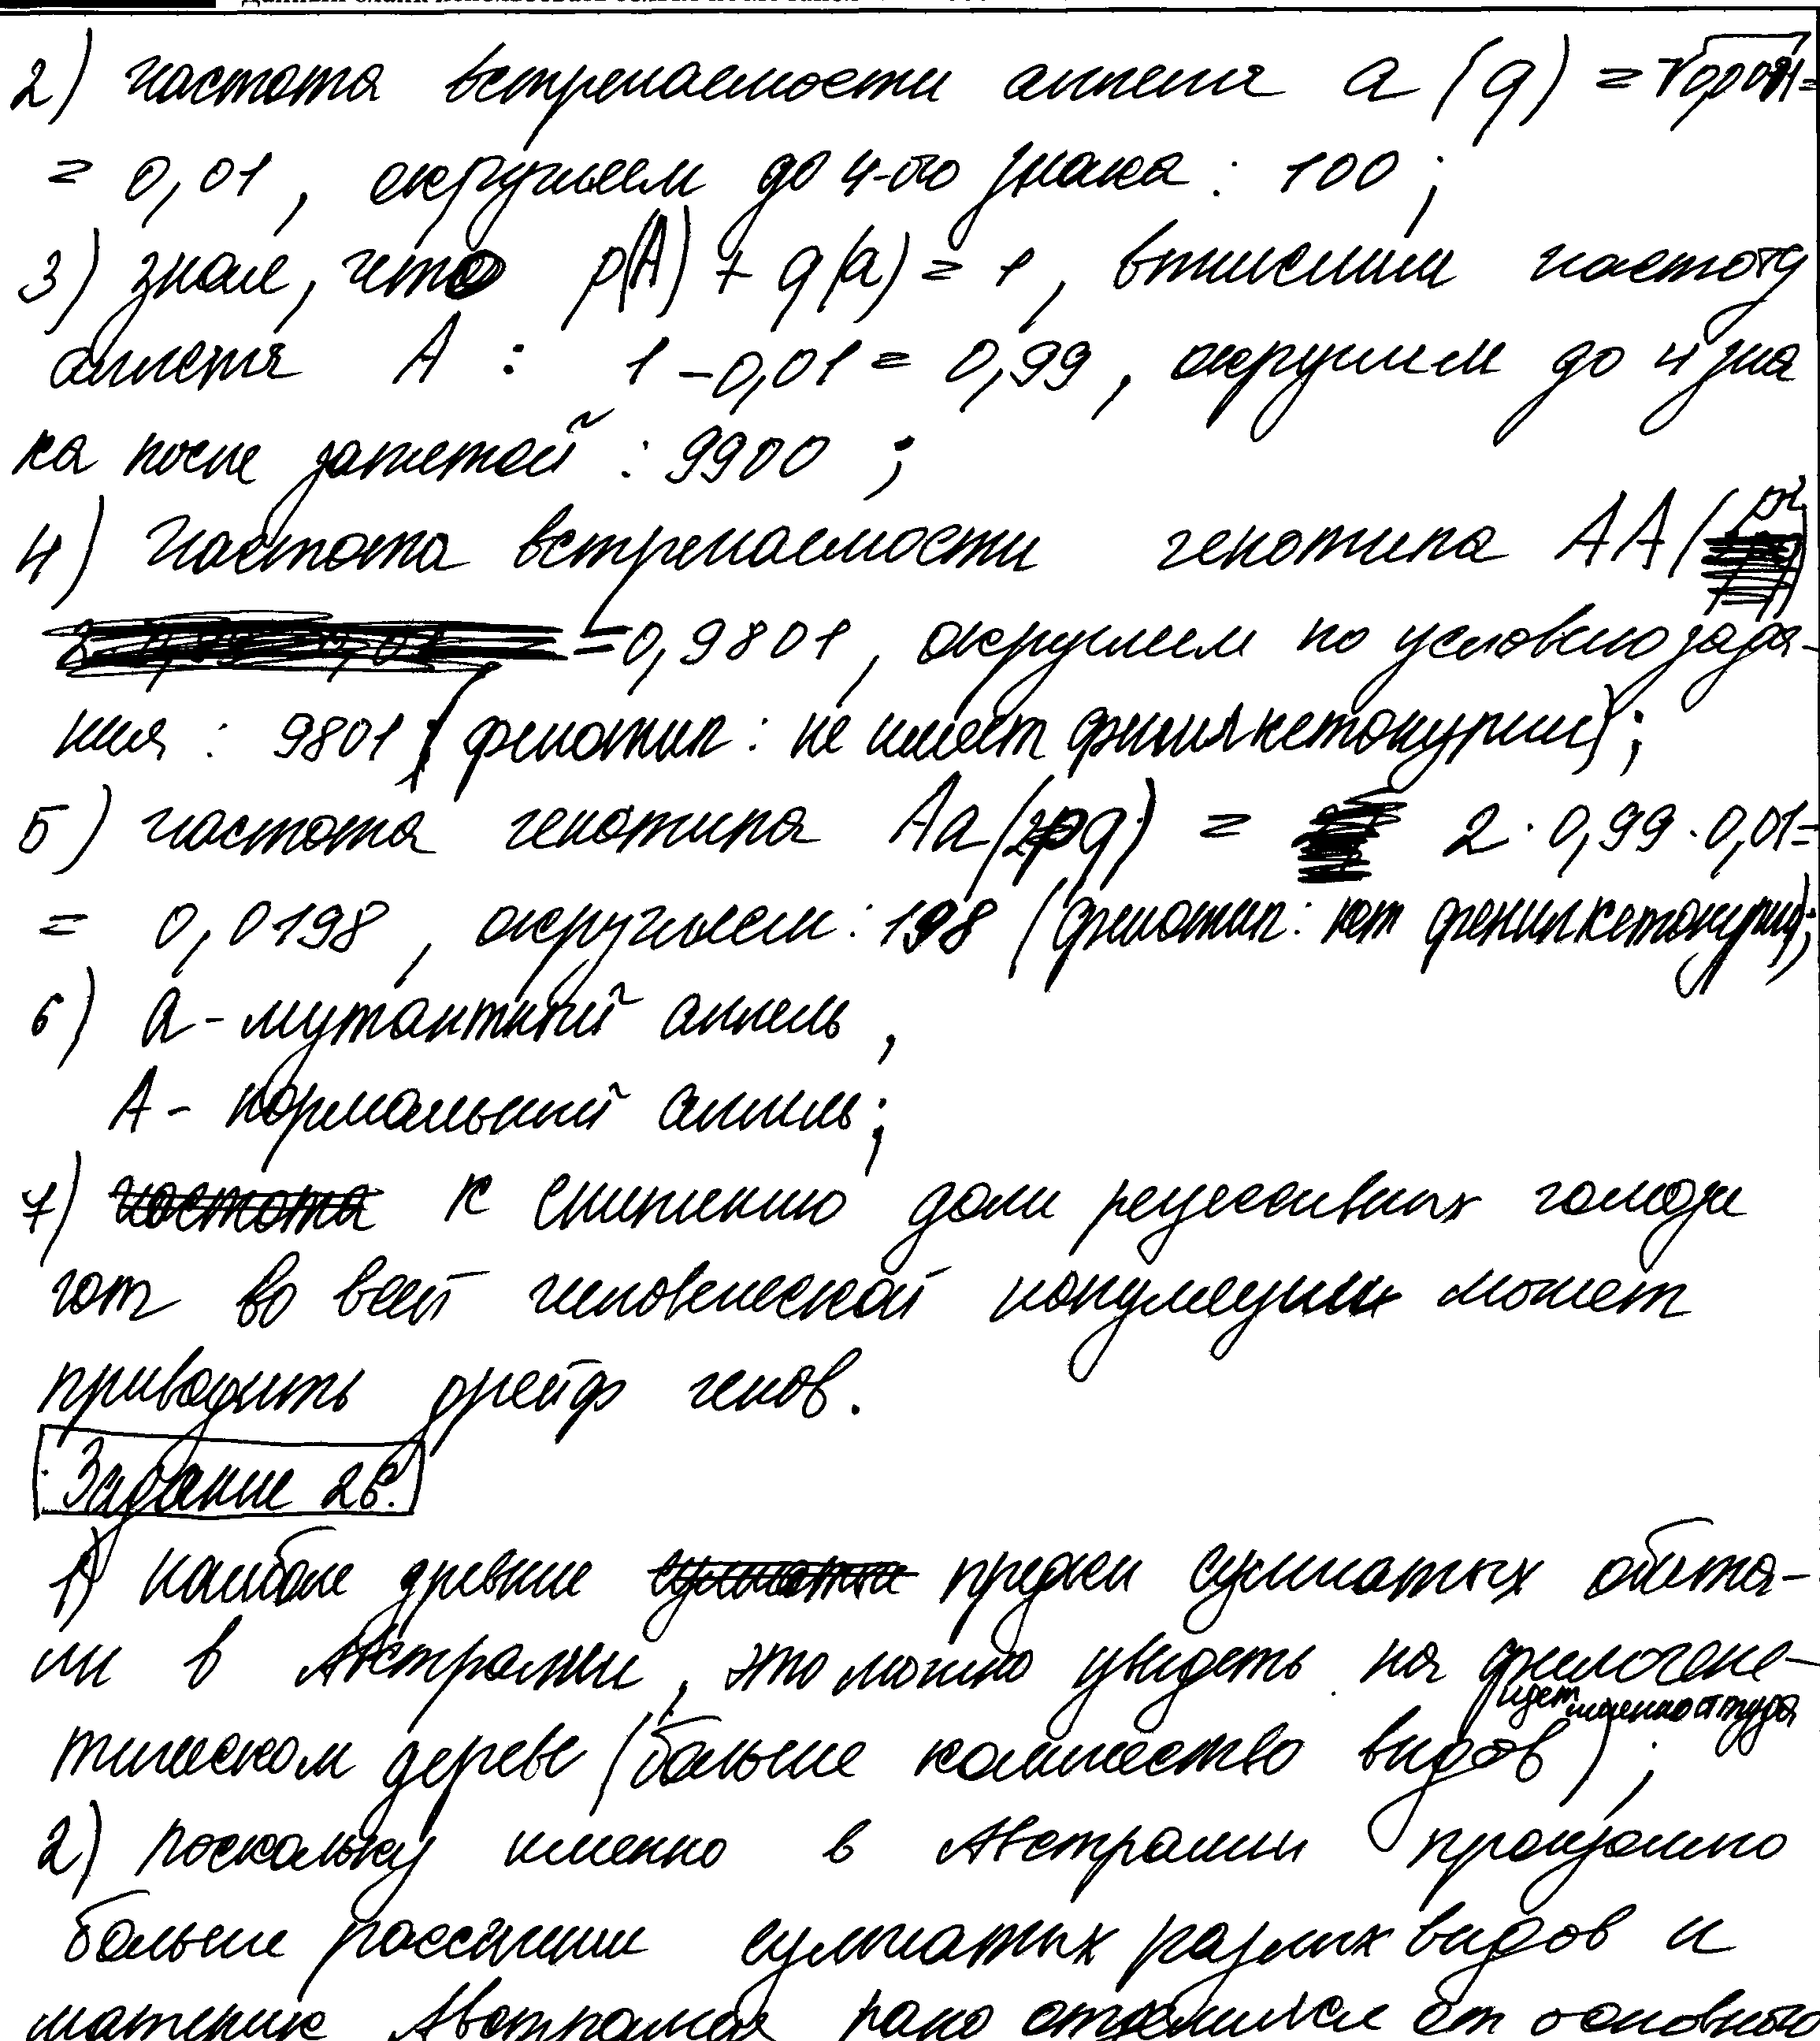 2) частота встречаемости аллеля a (q) = √0,0001 =
= 0,01, округляем до 4-ого знака : 100 ;
3) зная, что p(A) + q(a) = 1, вычислим частоту
аллеля A : 1 - 0,01 = 0,99, округлим до 4 зна
ка после запятой : 9900 ;
4) частота встречаемости генотипа AA (p²)
= 0,9801, округляем по условию зада-
ния : 9801 (фенотип : не имеет фенилкетонурии) ;
5) частота генотипа Aa (2pq) = 2 · 0,99 · 0,01 =
= 0,0198, округляем : 198 (фенотип : нет фенилкетонурии);
6) a - мутантный аллель,
A - нормальный аллель;
7) частота к снижению доли рецессивных гомози
гот во всей человеческой популяции может
приводить дрейф генов.
Задание 26.
1) наиболе древние сумчатые предки сумчатых обита-
ли в Австралии, это можно увидеть на филогене-
тическом дереве (больше количество видов идет именно оттуда) ;
2) поскольку именно в Австралии произошло
больше
сумчатых разных видов и
материк Австралия рано отделился от